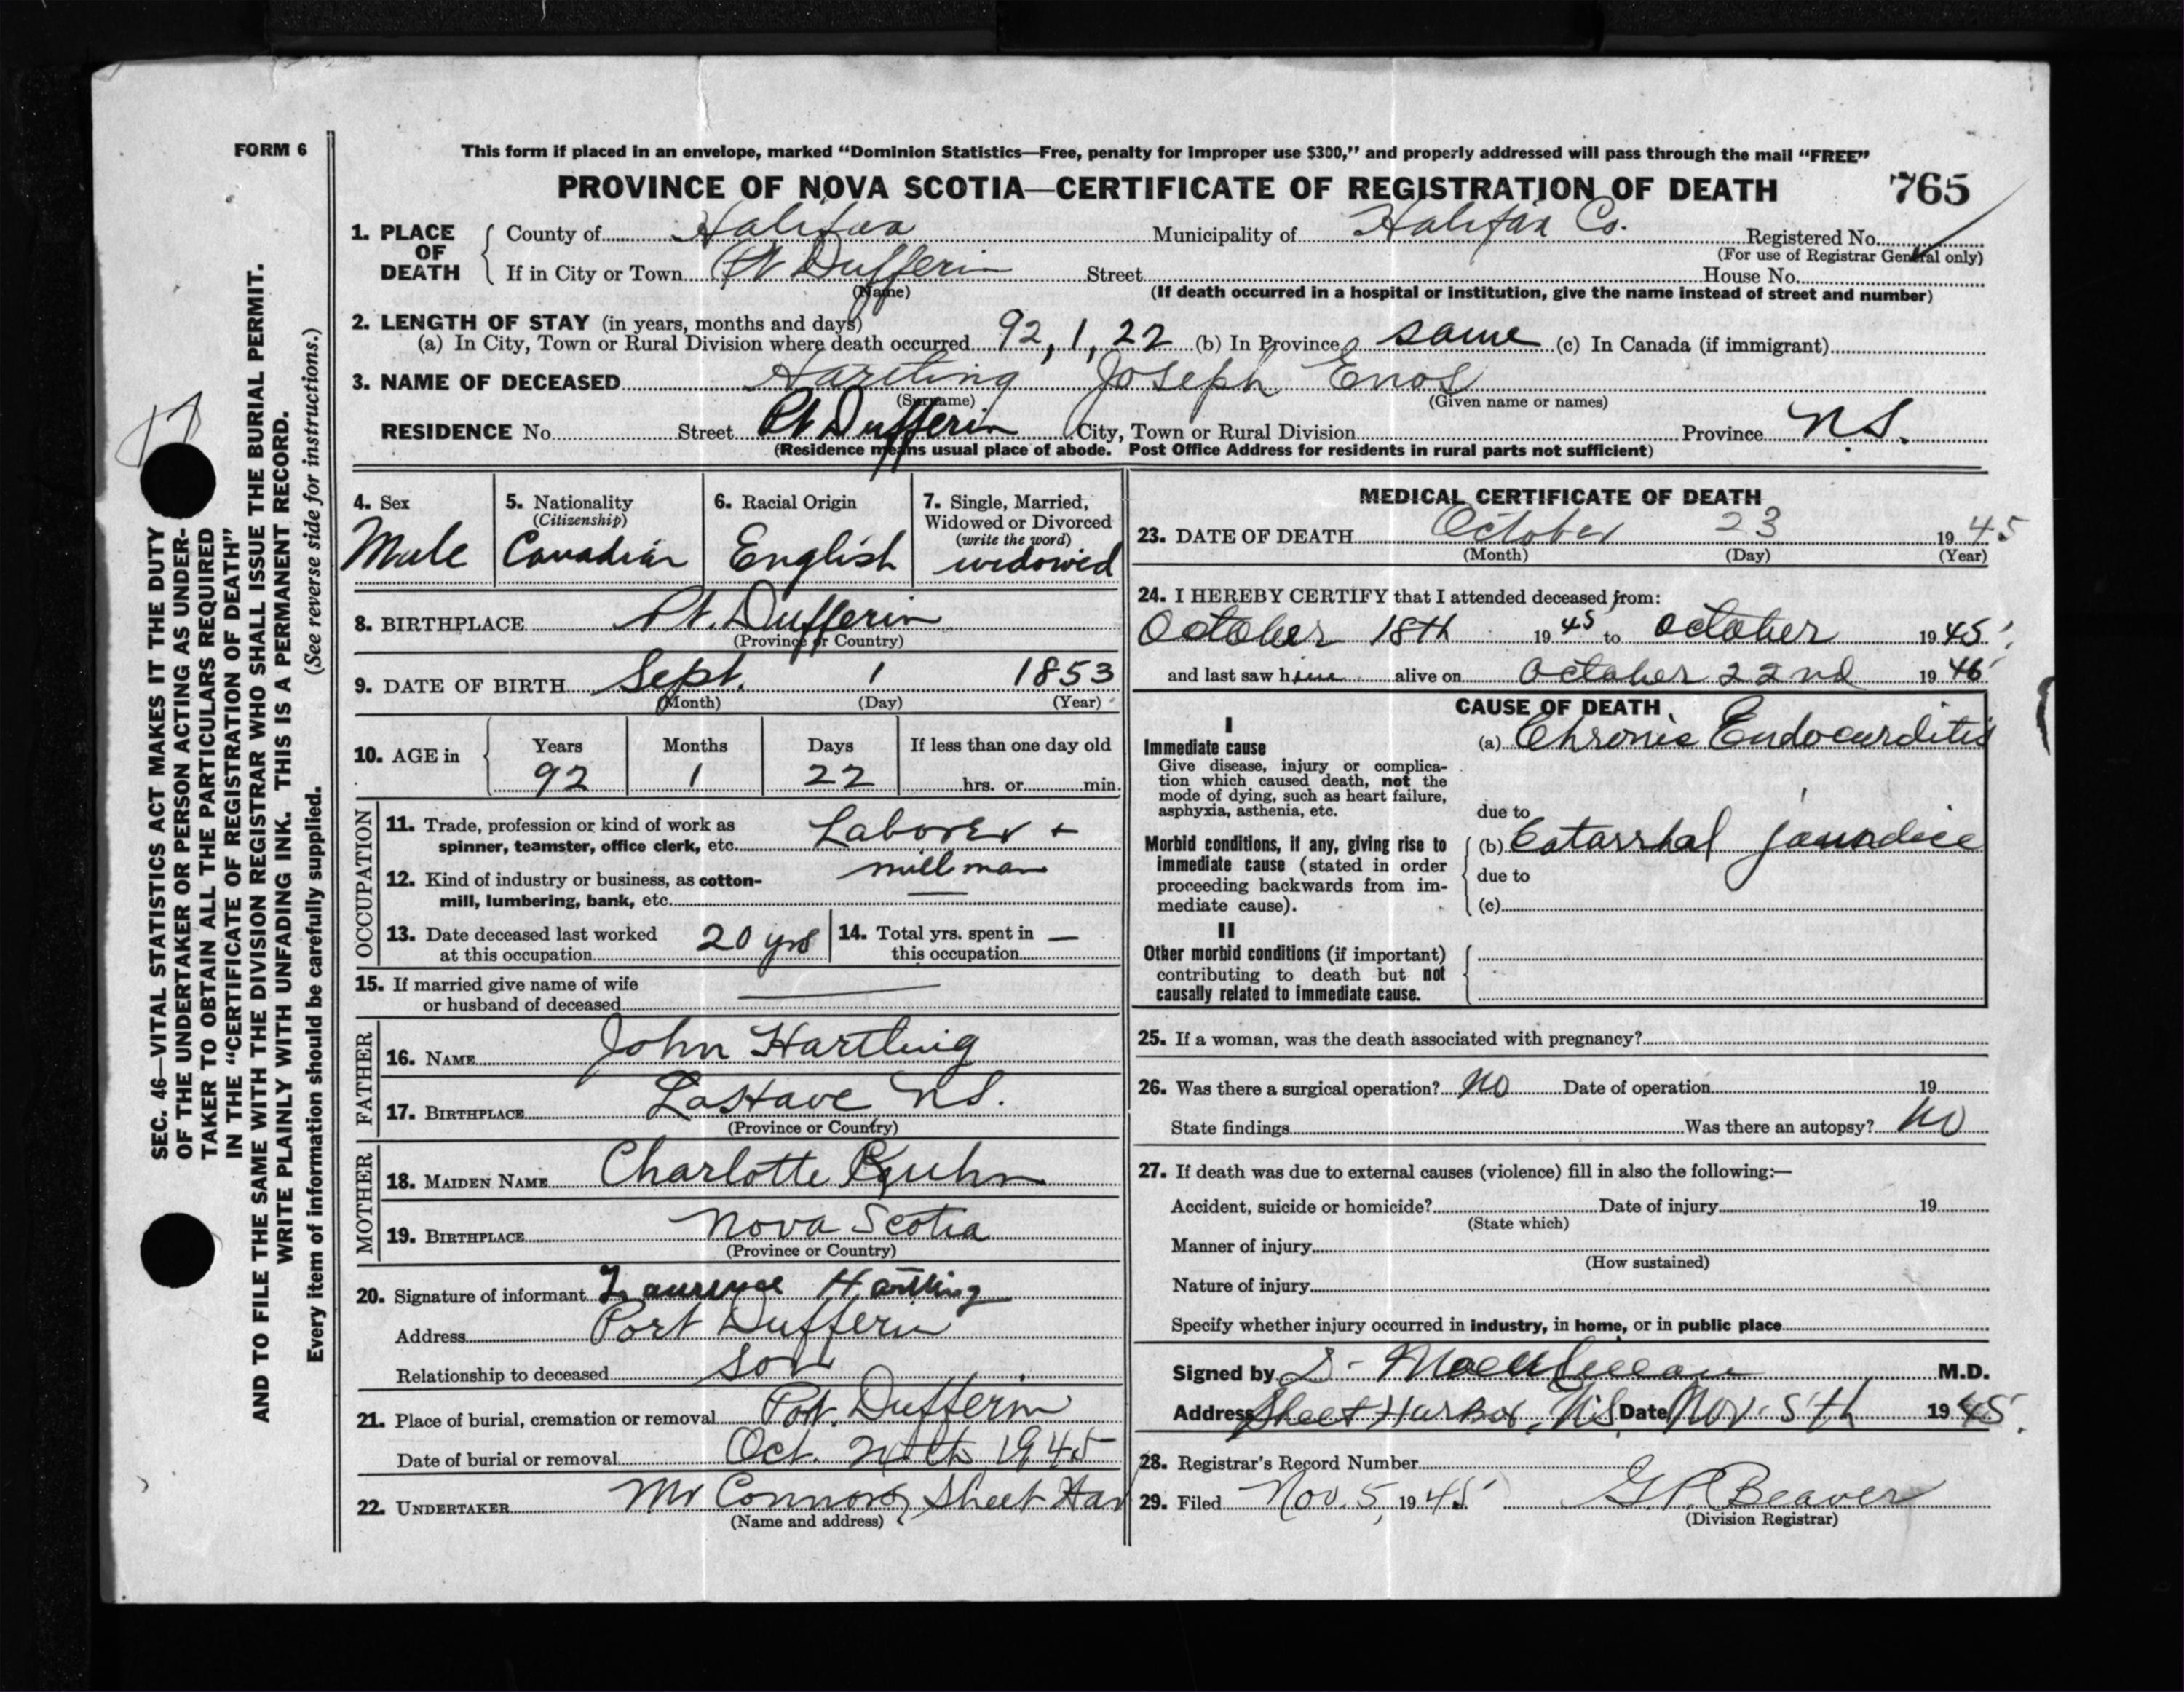 FORM 6
This form if placed in an envelope, marked “Dominion Statistics—Free, penalty for improper use $300,” and properly addressed will pass through the mail “FREE”
PROVINCE OF NOVA SCOTIA—CERTIFICATE OF REGISTRATION OF DEATH 765
1. PLACE OF DEATH County of Halifax Municipality of Halifax Co. Registered No.
(For use of Registrar General only)
If in City or Town Pt Dufferin Street House No.
(Name) (If death occurred in a hospital or institution, give the name instead of street and number)
2. LENGTH OF STAY (in years, months and days)
(a) In City, Town or Rural Division where death occurred 92, 1, 22 (b) In Province same (c) In Canada (if immigrant)
3. NAME OF DECEASED Hartling Joseph Enos
(Surname) (Given name or names)
RESIDENCE No. Street Pt Dufferin City, Town or Rural Division Province N.S.
(Residence means usual place of abode. Post Office Address for residents in rural parts not sufficient)
4. Sex
Male
5. Nationality
(Citizenship)
Canadian
6. Racial Origin
English
7. Single, Married,
Widowed or Divorced
(write the word)
widowed
8. BIRTHPLACE Pt. Dufferin
(Province or Country)
9. DATE OF BIRTH Sept. 1 1853
(Month) (Day) (Year)
10. AGE in Years Months Days If less than one day old
92 1 22 hrs. or min.
OCCUPATION
11. Trade, profession or kind of work as
spinner, teamster, office clerk, etc. Laborer +
millman
12. Kind of industry or business, as cotton-
mill, lumbering, bank, etc.
13. Date deceased last worked
at this occupation 20 yrs
14. Total yrs. spent in
this occupation —
15. If married give name of wife
or husband of deceased
FATHER
16. NAME John Hartling
17. BIRTHPLACE LaHave N.S.
(Province or Country)
MOTHER
18. MAIDEN NAME Charlotte Kuhn
19. BIRTHPLACE Nova Scotia
(Province or Country)
20. Signature of informant Laurence Hartling
Address Port Dufferin
Relationship to deceased son
21. Place of burial, cremation or removal Port. Dufferin
Date of burial or removal Oct. 24th 1945
22. UNDERTAKER Mr Connors, Sheet Har
(Name and address)
MEDICAL CERTIFICATE OF DEATH
23. DATE OF DEATH October 23 1945
(Month) (Day) (Year)
24. I HEREBY CERTIFY that I attended deceased from:
October 18th 1945 to October 1945
and last saw him alive on October 22nd 1945
CAUSE OF DEATH
I
Immediate cause
Give disease, injury or complica-
tion which caused death, not the
mode of dying, such as heart failure,
asphyxia, asthenia, etc.
(a) Chronic Endocarditis
due to
Morbid conditions, if any, giving rise to
immediate cause (stated in order
proceeding backwards from im-
mediate cause).
(b) Catarrhal jaundice
due to
(c)
II
Other morbid conditions (if important)
contributing to death but not
causally related to immediate cause.
25. If a woman, was the death associated with pregnancy?
26. Was there a surgical operation? No Date of operation 19
State findings Was there an autopsy? No
27. If death was due to external causes (violence) fill in also the following:—
Accident, suicide or homicide? Date of injury 19
(State which)
Manner of injury
(How sustained)
Nature of injury
Specify whether injury occurred in industry, in home, or in public place
Signed by M.D.
Address Sheet Harbor, N.S. Date Nov. 5th 1945.
28. Registrar's Record Number
29. Filed Nov. 5, 1945 G.P. Beaver
(Division Registrar)
SEC. 46—VITAL STATISTICS ACT MAKES IT THE DUTY
OF THE UNDERTAKER OR PERSON ACTING AS UNDER-
TAKER TO OBTAIN ALL THE PARTICULARS REQUIRED
IN THE “CERTIFICATE OF REGISTRATION OF DEATH”
AND TO FILE THE SAME WITH THE DIVISION REGISTRAR WHO SHALL ISSUE THE BURIAL PERMIT.
WRITE PLAINLY WITH UNFADING INK. THIS IS A PERMANENT RECORD.
Every item of information should be carefully supplied. (See reverse side for instructions.)